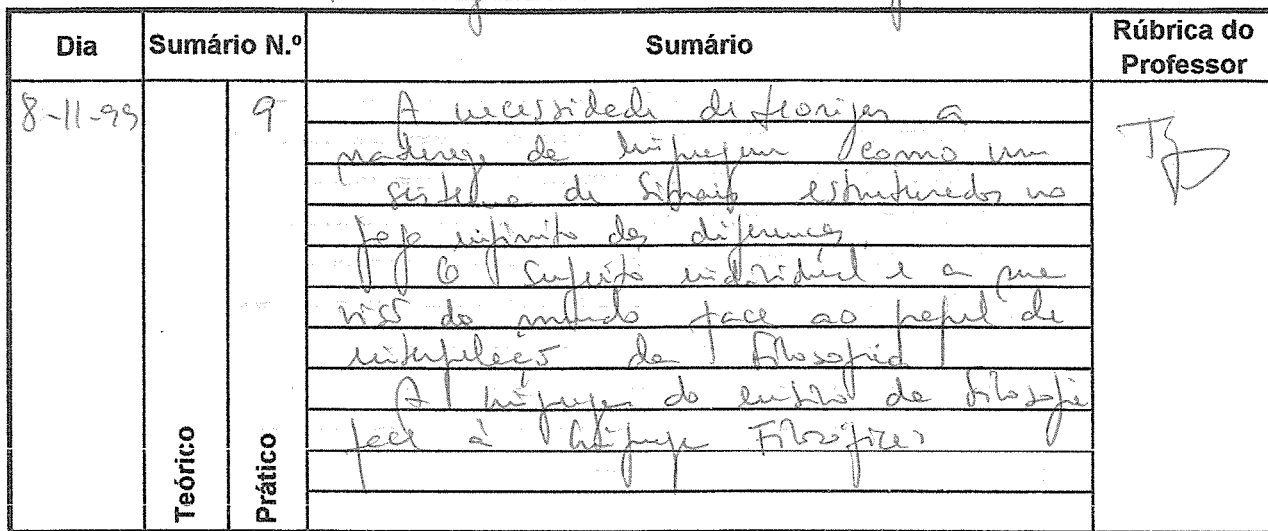 Dia Sumário N.º Sumário Rúbrica do Professor
8-11-99 9 A necessidade de teorizar a
natureza da linguagem como um
sistema de sinais estruturados no
jogo infinito das diferenças
O sujeito individual e a sua
visão do mundo face ao papel de
interpelação da Filosofia
A linguagem do ensino da filosofia
face à linguagem Filosófica
Teórico Prático